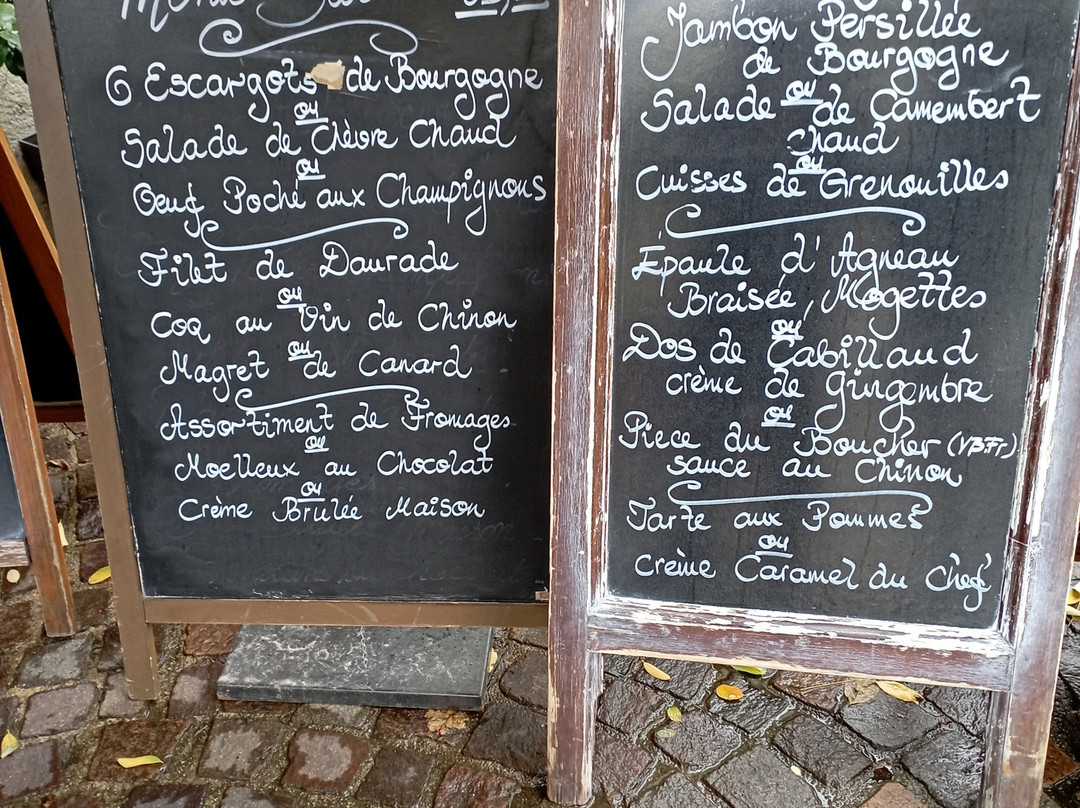 6 Escargots de Bourgogne
ou
Salade de Chèvre Chaud
ou
Oeuf Poché aux Champignons
Filet de Daurade
ou
Coq au Vin de Chinon
ou
Magret de Canard
Assortiment de Fromages
ou
Moelleux au Chocolat
ou
Crème Brulée Maison
Jambon Persillée
de Bourgogne
ou
Salade de Camembert
Chaud
ou
Cuisses de Grenouilles
Épaule d'Agneau
Braisée, Mogettes
ou
Dos de Cabillaud
crème de gingembre
ou
Piece du Boucher (VBFr)
sauce au Chinon
Tarte aux Pommes
ou
crème Caramel du Chef